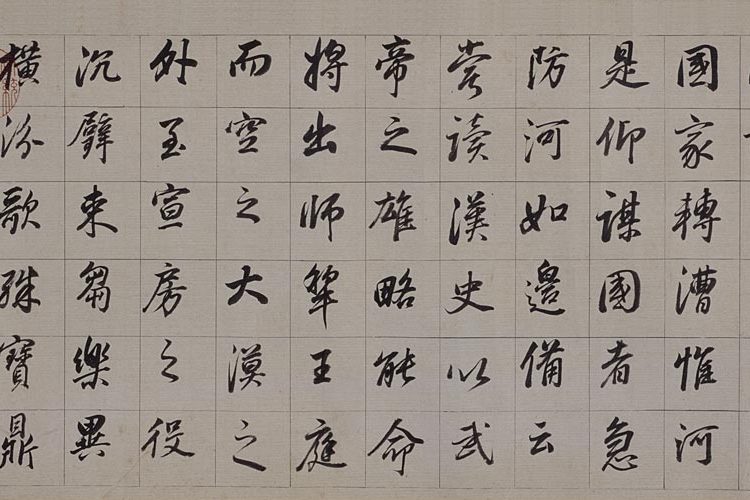 國家轉漕惟河
是仰謀國者急
防河如邊備云
嘗讀漢史以武
帝之雄略能命
將出師犂王庭
而空之大漠之
外至宣房之役
沉璧束芻樂異
橫汾歌殊寶鼎